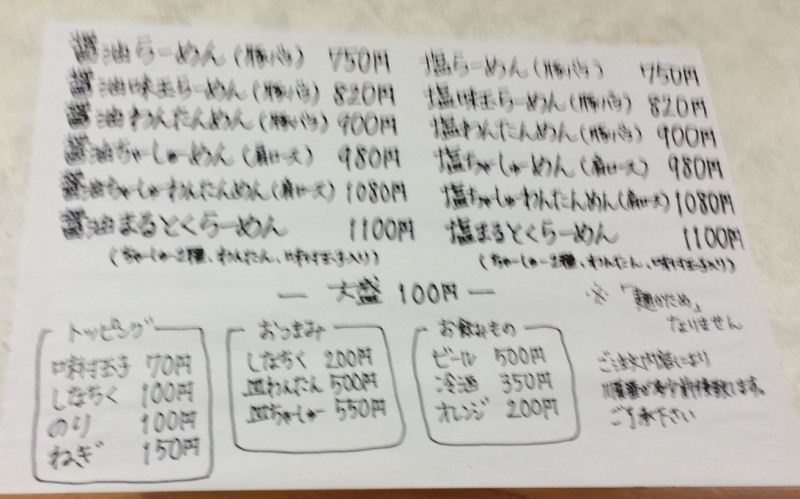 醤油らーめん(豚バラ) 750円
醤油味玉らーめん(豚バラ) 820円
醤油わんたんめん(豚バラ) 900円
醤油ちゃーしゅーめん(肩ロース) 980円
醤油ちゃーしゅーわんたんめん(肩ロース) 1080円
醤油まるとくらーめん 1100円
(ちゃーしゅー2種、わんたん、味付玉子入り)
塩らーめん(豚バラ) 750円
塩味玉らーめん(豚バラ) 820円
塩わんたんめん(豚バラ) 900円
塩ちゃーしゅーめん(肩ロース) 980円
塩ちゃーしゅーわんたんめん(肩ロース) 1080円
塩まるとくらーめん 1100円
(ちゃーしゅー2種、わんたん、味付玉子入り)
— 大盛 100円 —
※「麺かため」
なりません
トッピング
味付玉子 70円
しなちく 100円
のり 100円
ねぎ 150円
おつまみ
しなちく 200円
皿わんたん 500円
皿ちゃーしゅー 550円
お飲みもの
ビール 500円
冷酒 350円
オレンジ 200円
ご注文内容により
順番が多少前後致します。
ご了承下さい